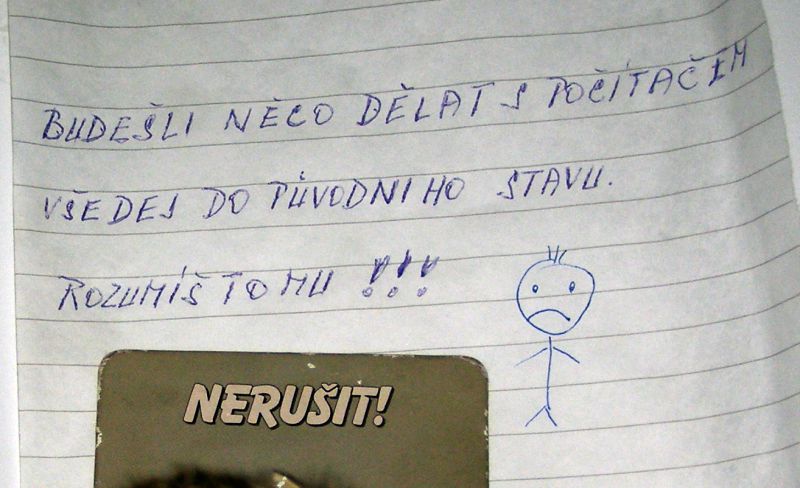 BUDEŠLI NĚCO DĚLAT S POČÍTAČEM
VŠE DEJ DO PŮVODNIHO STAVU.
ROZUMÍŠ TOMU !!!
NERUŠIT!